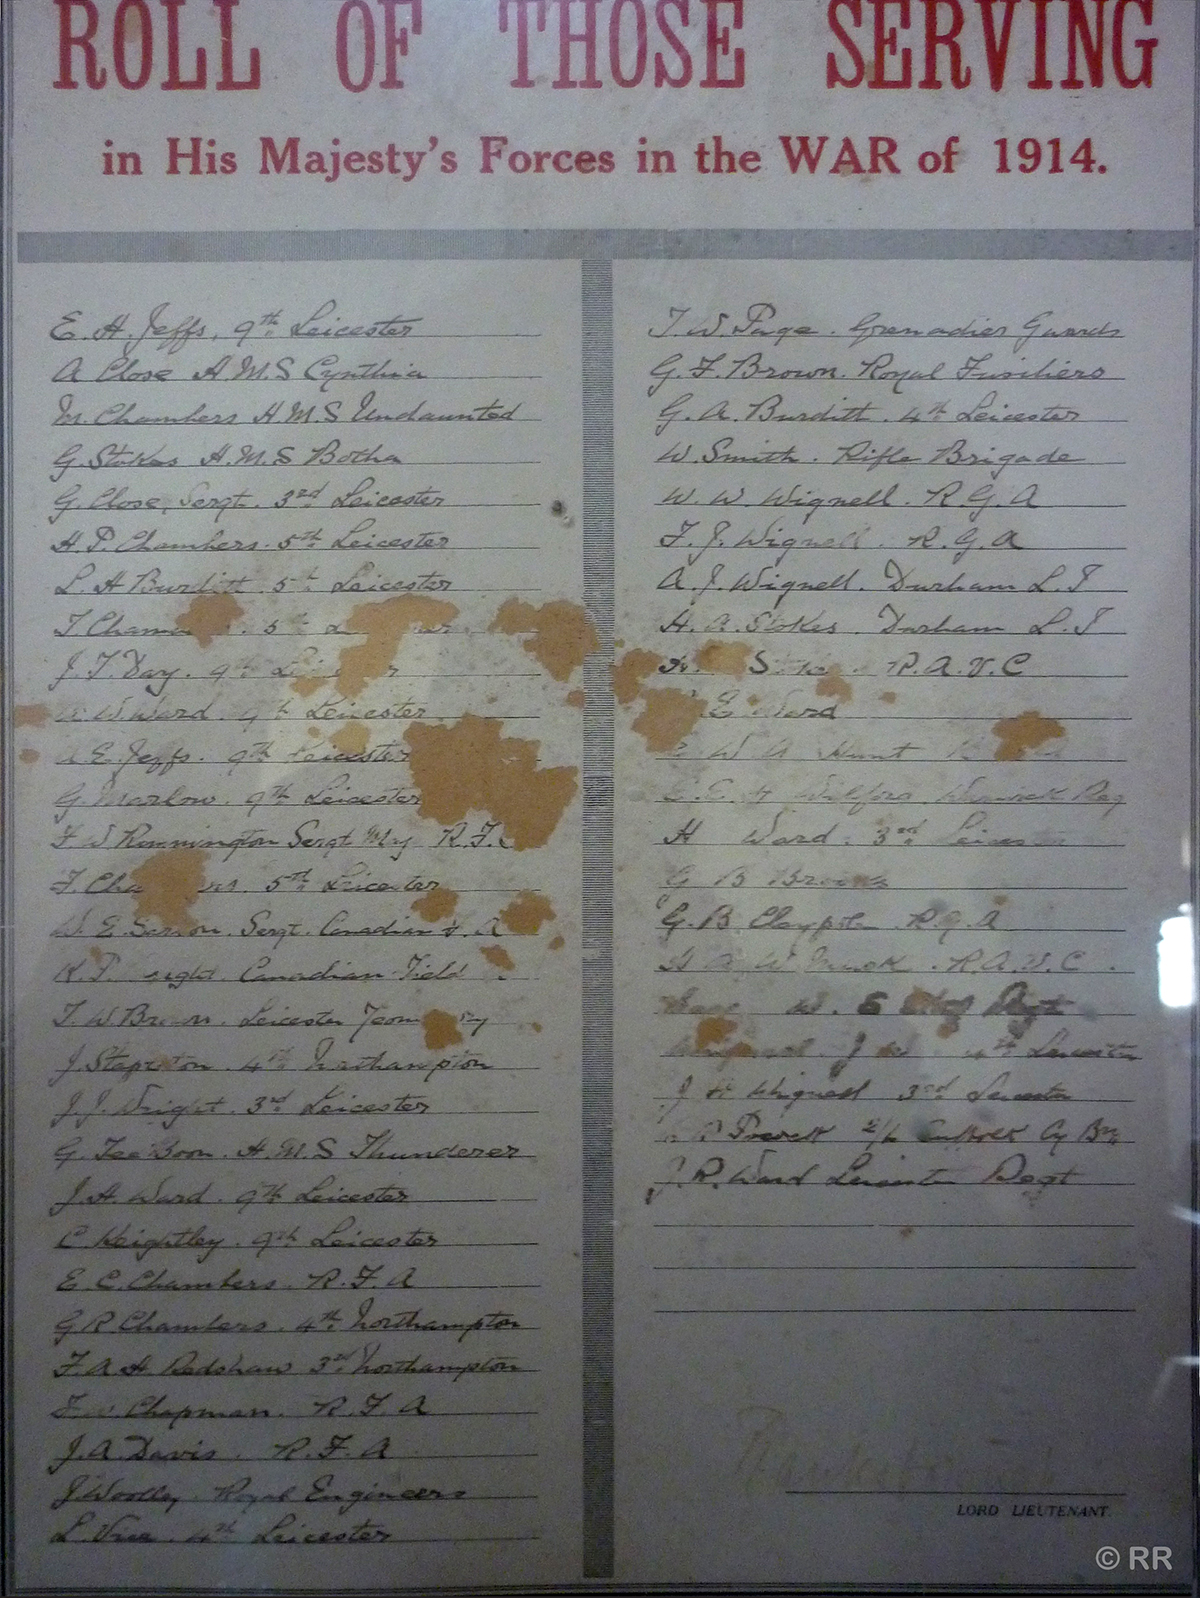 ROLL OF THOSE SERVING
in His Majesty's Forces in the WAR of 1914.
E. H. Jeffs. 9th Leicester
A Close H.M.S Cynthia
M. Chambers H.M.S Undaunted
G. Stokes H.M.S Botha
G. Close, Sergt. 3rd Leicester
H. P. Chambers. 5th Leicester
L. H Burditt 5th Leicester
5th
J. T. Day. 9th
W Ward. 9th Leicester
A. E. Jeffs. 9th Leicester
G. Marlow. 9th Leicester
F W Ronnington Sergt R.F.
5th Leicester
W. E. Sergt. Canadian
Canadian Field
T. W. Brown. Leicester
J. 4th Northampton
J. J. Wright. 3rd Leicester
G. Tee Boon. H.M.S Thunderer
J. H. Ward. 9th Leicester
C. Keightley. 9th Leicester
E. C. Chambers. R.F.A
G R Chambers. 4th Northampton
F. A. H. Redshaw 3rd Northampton
F. W. Chapman. R.F.A
J. A. Davis. R.F.A
J. Woolley Royal Engineers
L. Vice. 4th Leicester
T. W. Page. Grenadier Guards
G. F. Brown. Royal Fusiliers
G. A. Burditt. 4th Leicester
W. Smith. Rifle Brigade
W. W. Wignell. R.G.A
F. J. Wignell. R.G.A
A. J. Wignell. Durham L.I
H. A. Stokes. Durham L.I
R.A.V.C
E Ward
W A Hunt
E. H Wilford Warwick Reg
H Ward. 3rd
G B
G. B. R.G.A
H A W R.A.V.C.
W. 6 Regt
J W 4th Leicester
J H Wignell 3rd Leicester
Suffolk Cy Bn
J. R. Ward Leicester Regt
LORD LIEUTENANT.
© RR